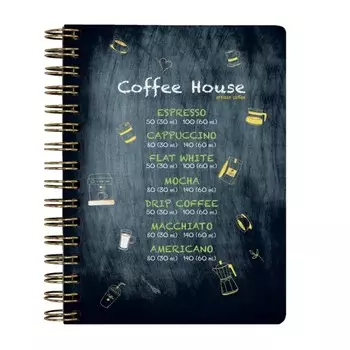 Coffee House
artisan coffee
ESPRESSO
50 (30 ml) 100 (60 ml)
CAPPUCCINO
80 (30 ml) 140 (60 ml)
FLAT WHITE
50 (30 ml) 100 (60 ml)
MOCHA
80 (30 ml) 140 (60 ml)
DRIP COFFEE
50 (30 ml) 100 (60 ml)
MACCHIATO
80 (30 ml) 140 (60 ml)
AMERICANO
80 (30 ml) 140 (60 ml)